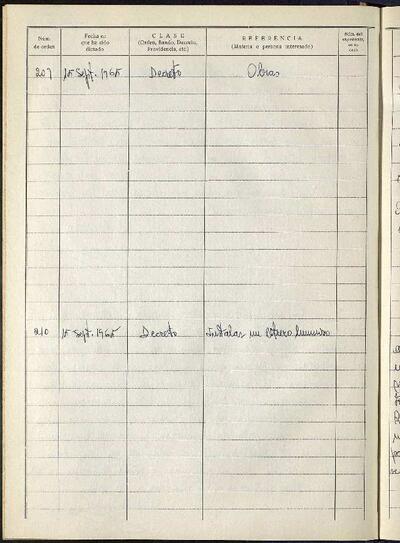 Núm. de orden
Fecha en que ha sido dictado
CLASE (Orden, Bando, Decreto, Providencia, etc.)
REFERENCIA (Materia o persona interesada)
Núm. del expediente, en su caso
207 15 Sept. 1965 Decreto Obras
210 15 Sept. 1965 Decreto Instalar un letrero luminoso